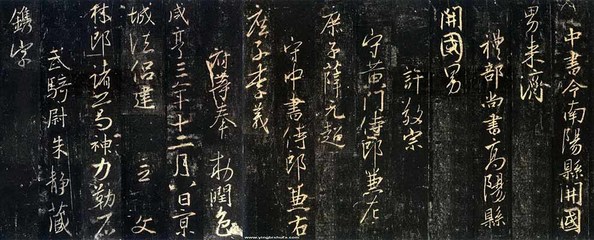 中書令南陽縣開國
男來濟
禮部尚書高陽縣
開國男
許敬宗
守黃門侍郎兼左
庶子薛元超
守中書侍郎兼右
庶子李義
府等奉 勅潤色
咸亨三年十二月八日京
城法侶建立 文
林郎諸葛神力勒石
武騎尉朱靜藏
鐫字
www.yingbishufa.com